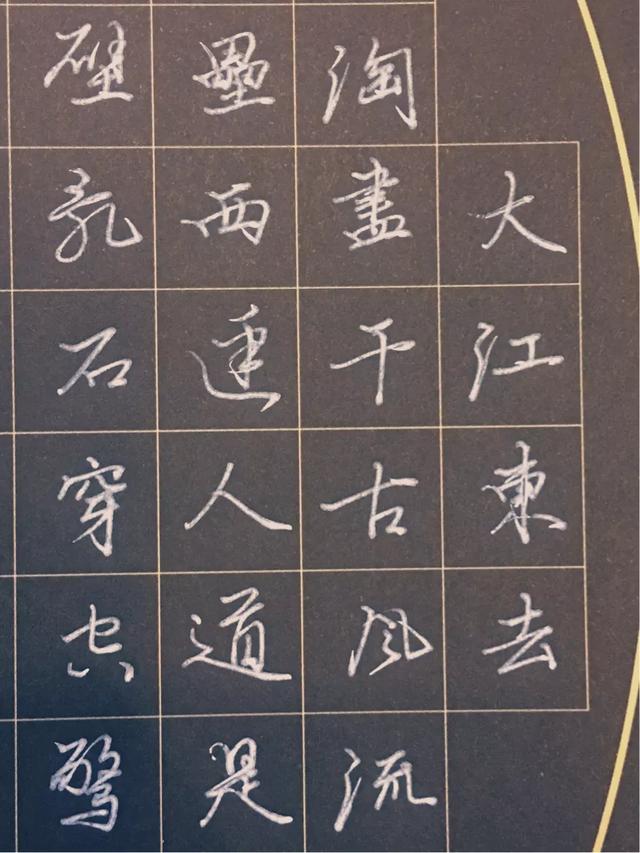 大江東去
淘盡千古風流
壘西邊人道是
壁亂石穿空驚